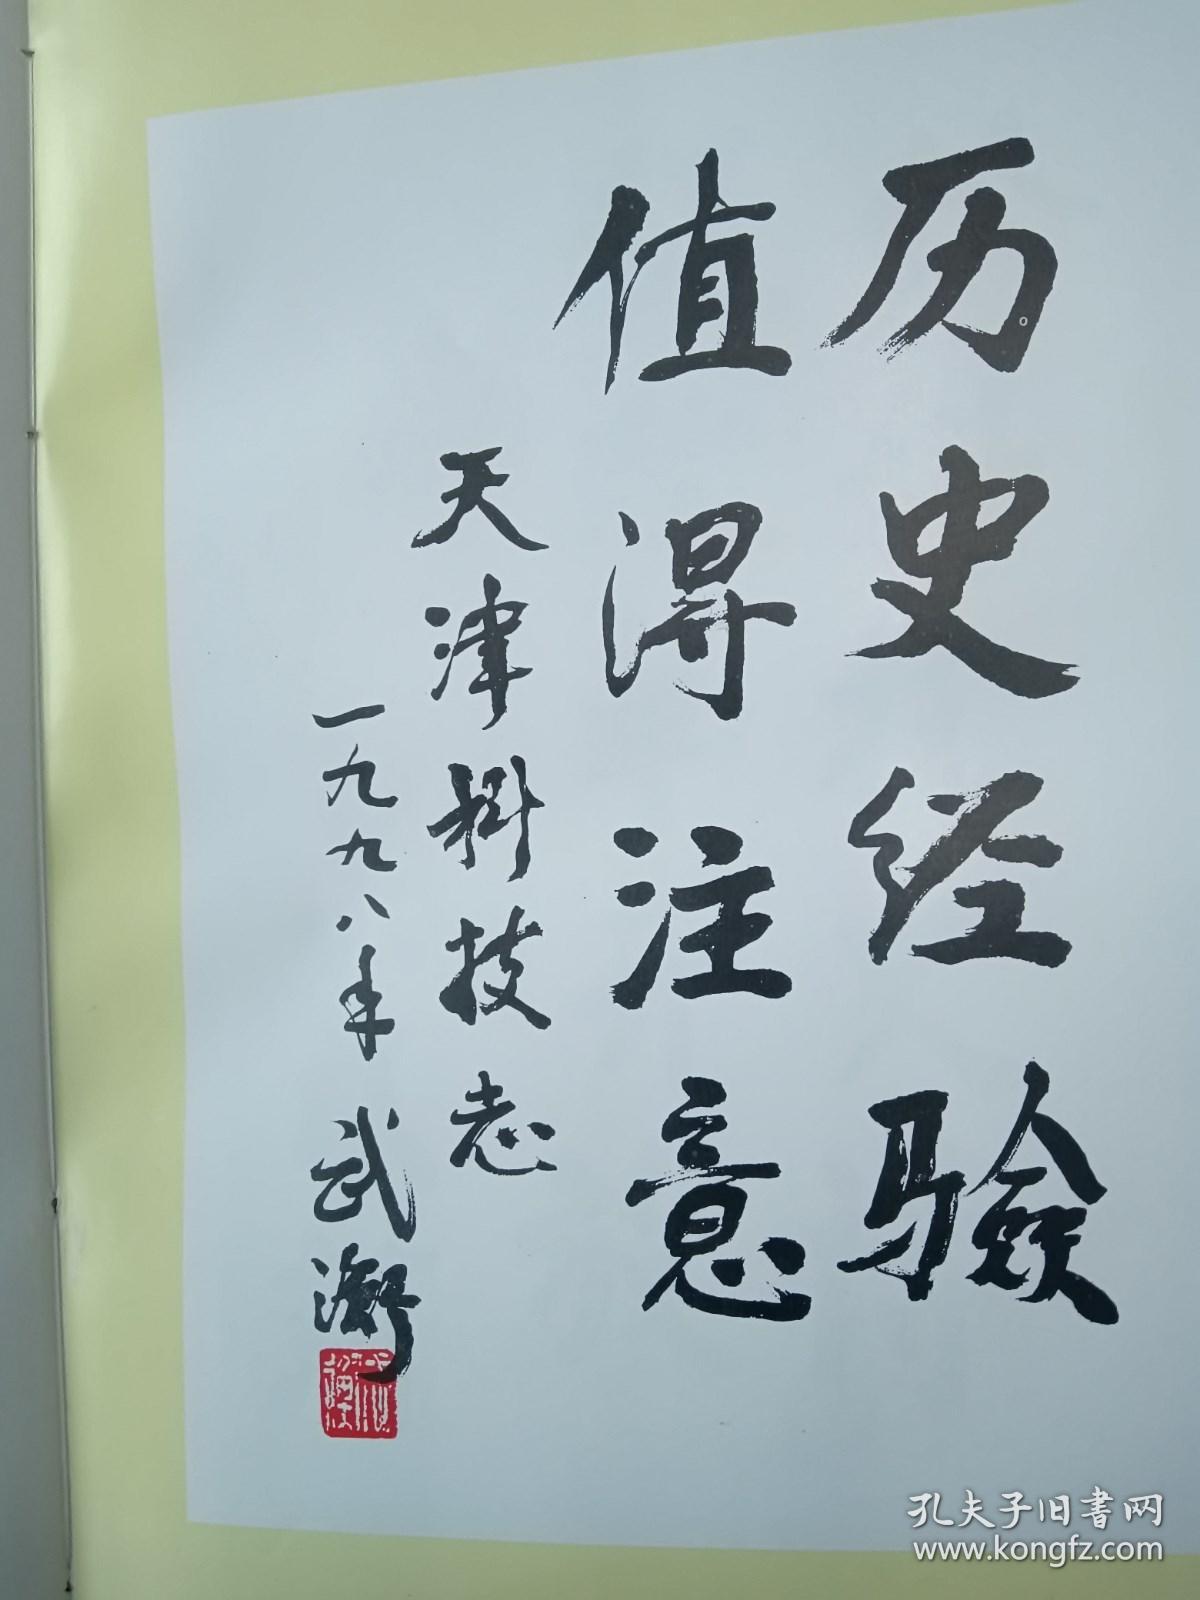 历史经验
值得注意
天津科技志
一九九八年 武衡
孔夫子旧書网
www.kongfz.com